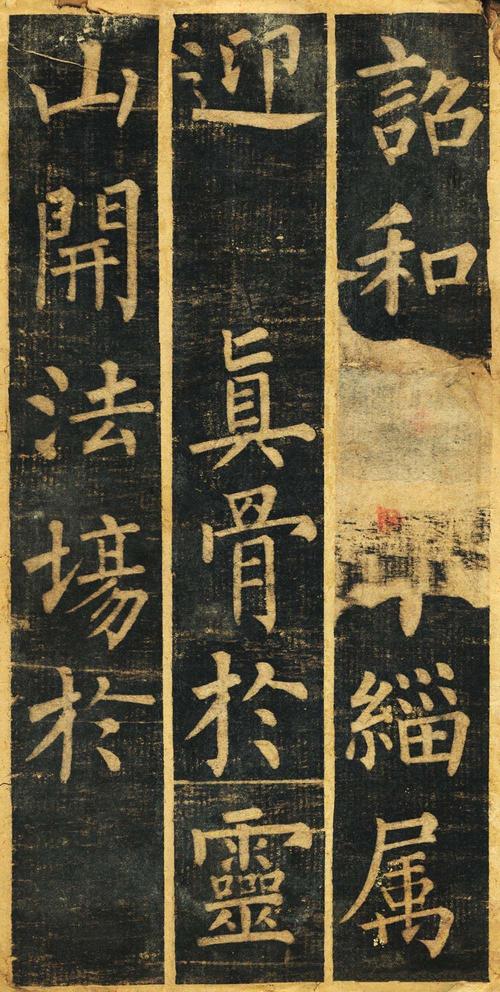 詔和緇属
迎眞骨於靈
山開法塲於